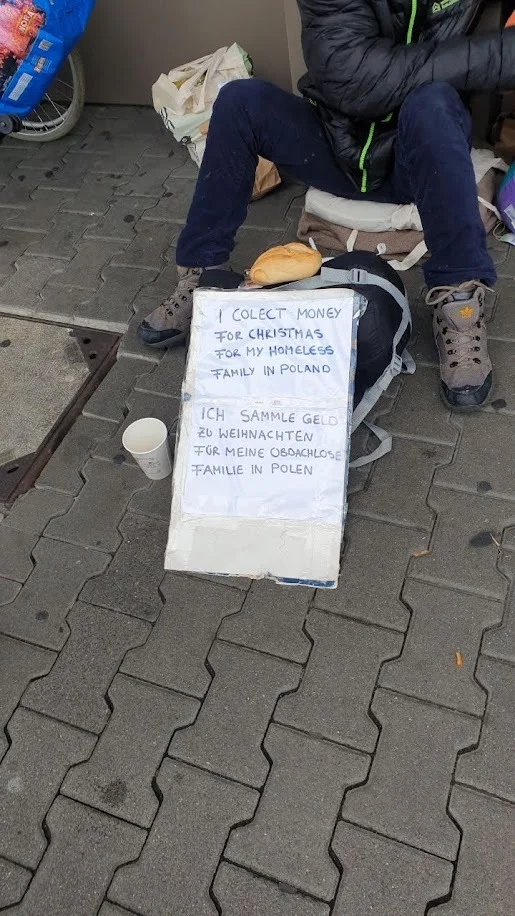 I COLECT MONEY
FOR CHRISTMAS
FOR MY HOMELESS
FAMILY IN POLAND
ICH SAMMLE GELD
ZU WEIHNACHTEN
FÜR MEINE OBDACHLOSE
FAMILIE IN POLEN